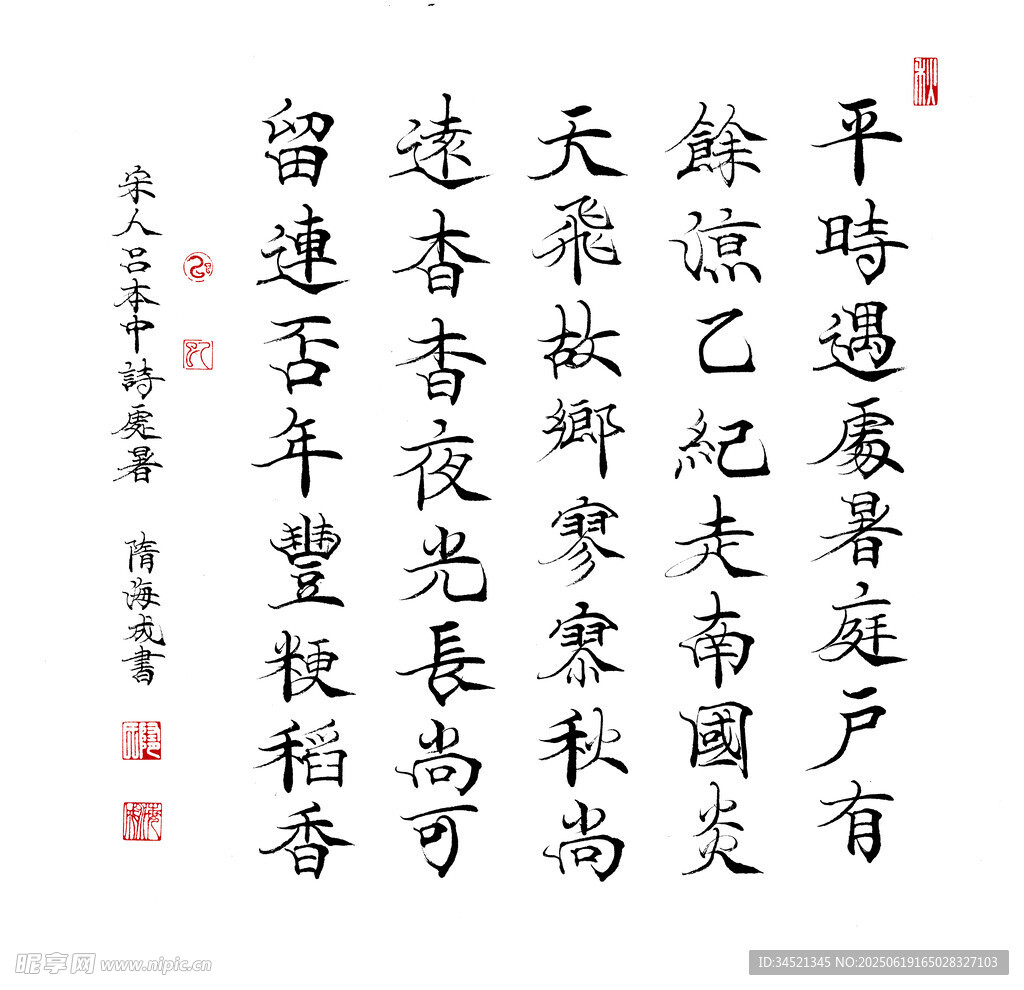 秋
平時遇處暑庭戶有
餘涼乙紀走南國炎
天飛故鄉寥寥秋尚
遠杳杳夜光長尚可
留連否年豐粳稻香
宋人呂本中詩處暑 隋海成書
昵享网 www.nipic.cn
ID:34521345 NO:20250619165028327103